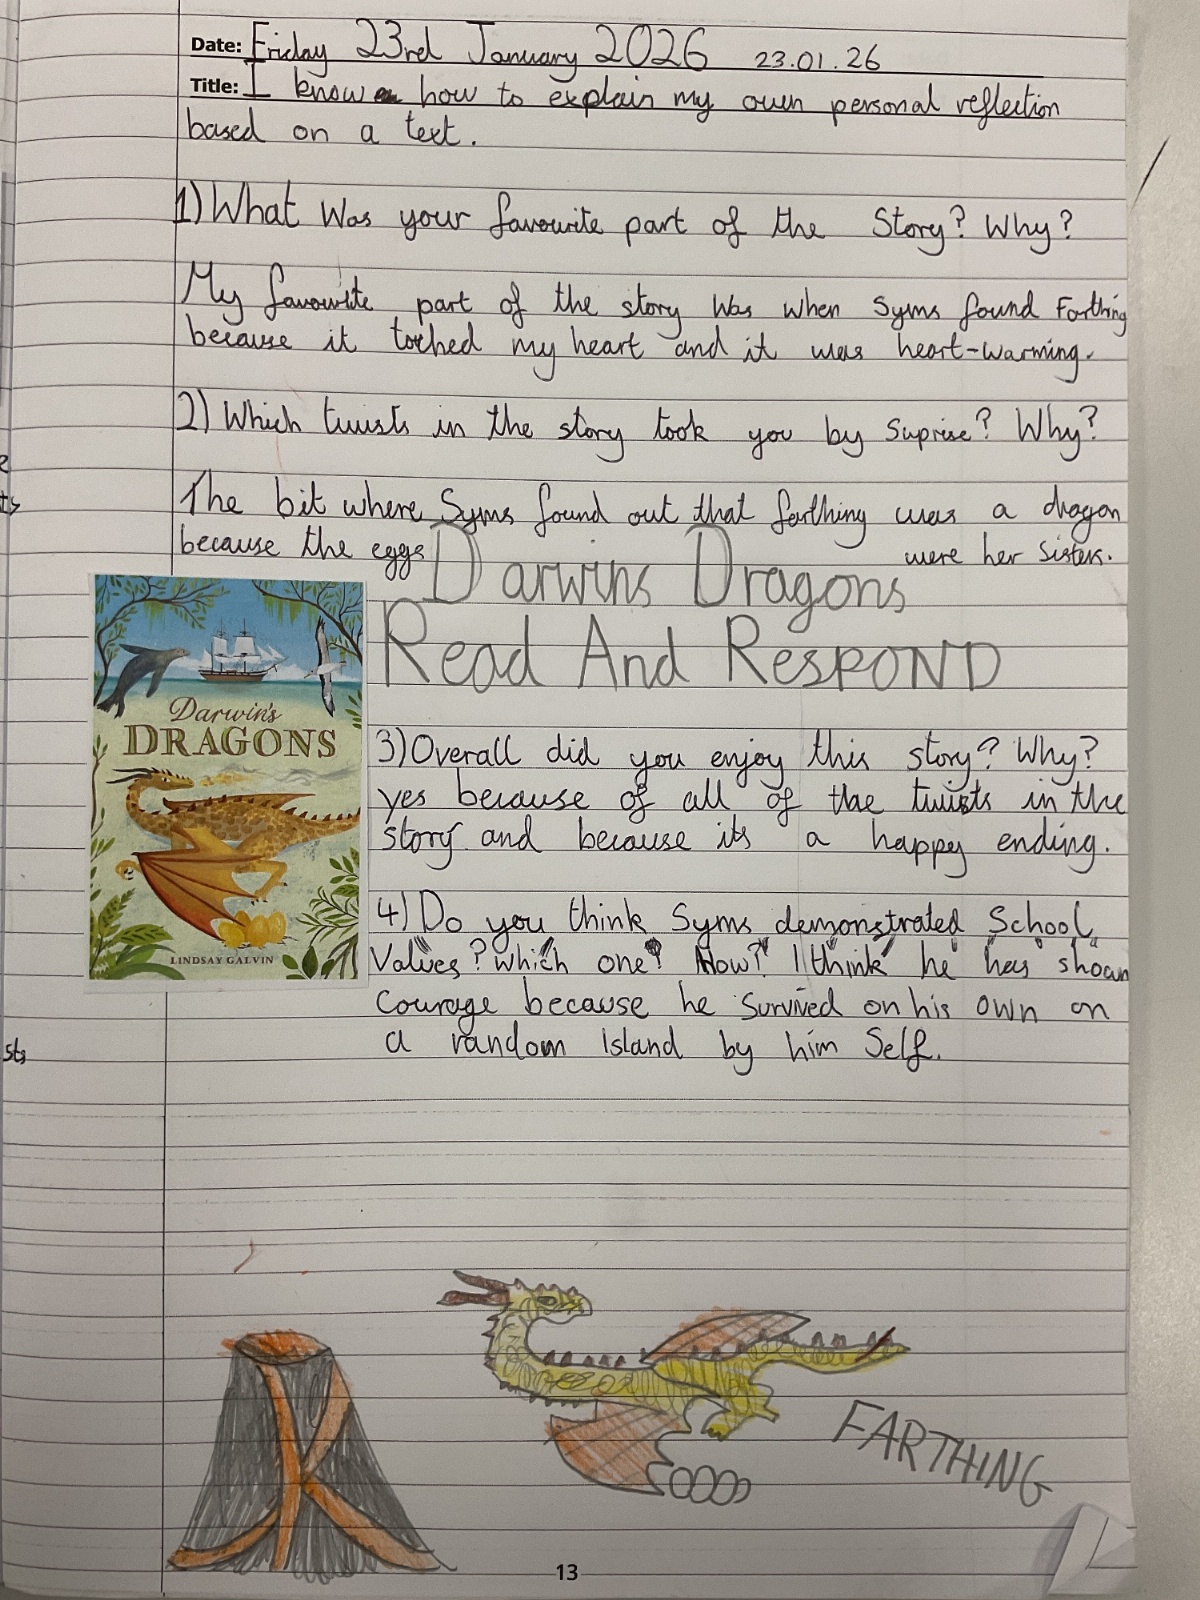 Date: Friday 23rd January 2026 23.01.26
Title: I know how to explain my own personal reflection
based on a text.
1) What was your favourite part of the Story? Why?
My favourite part of the story was when Syms found Farthing
because it toched my heart and it was heart-warming.
2) Which twists in the story took you by Suprise? Why?
The bit where Syms found out that farthing was a dragon
because the eggs were her sisters.
Darwins Dragons
Read And RESPOND
Darwin's
DRAGONS
LINDSAY GALVIN
3) Overall did you enjoy this story? Why?
yes because of all of the twists in the
story and because its a happy ending.
4) Do you think Syms demonstrated School
Values? which one? How? I think he has shown
Courage because he Survived on his own on
a random Island by him Self.
FARTHING
13
ts
sts